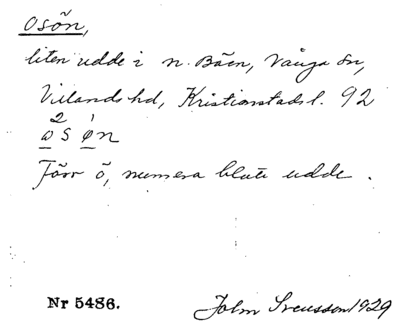 Osön,
liten udde i n. Bäen, Vånga sn,
Villands hd, Kristianstads l. 92
2 1
ω s φ n
Förr ö, numera blott udde.
Nr 5486. John Svensson 1929